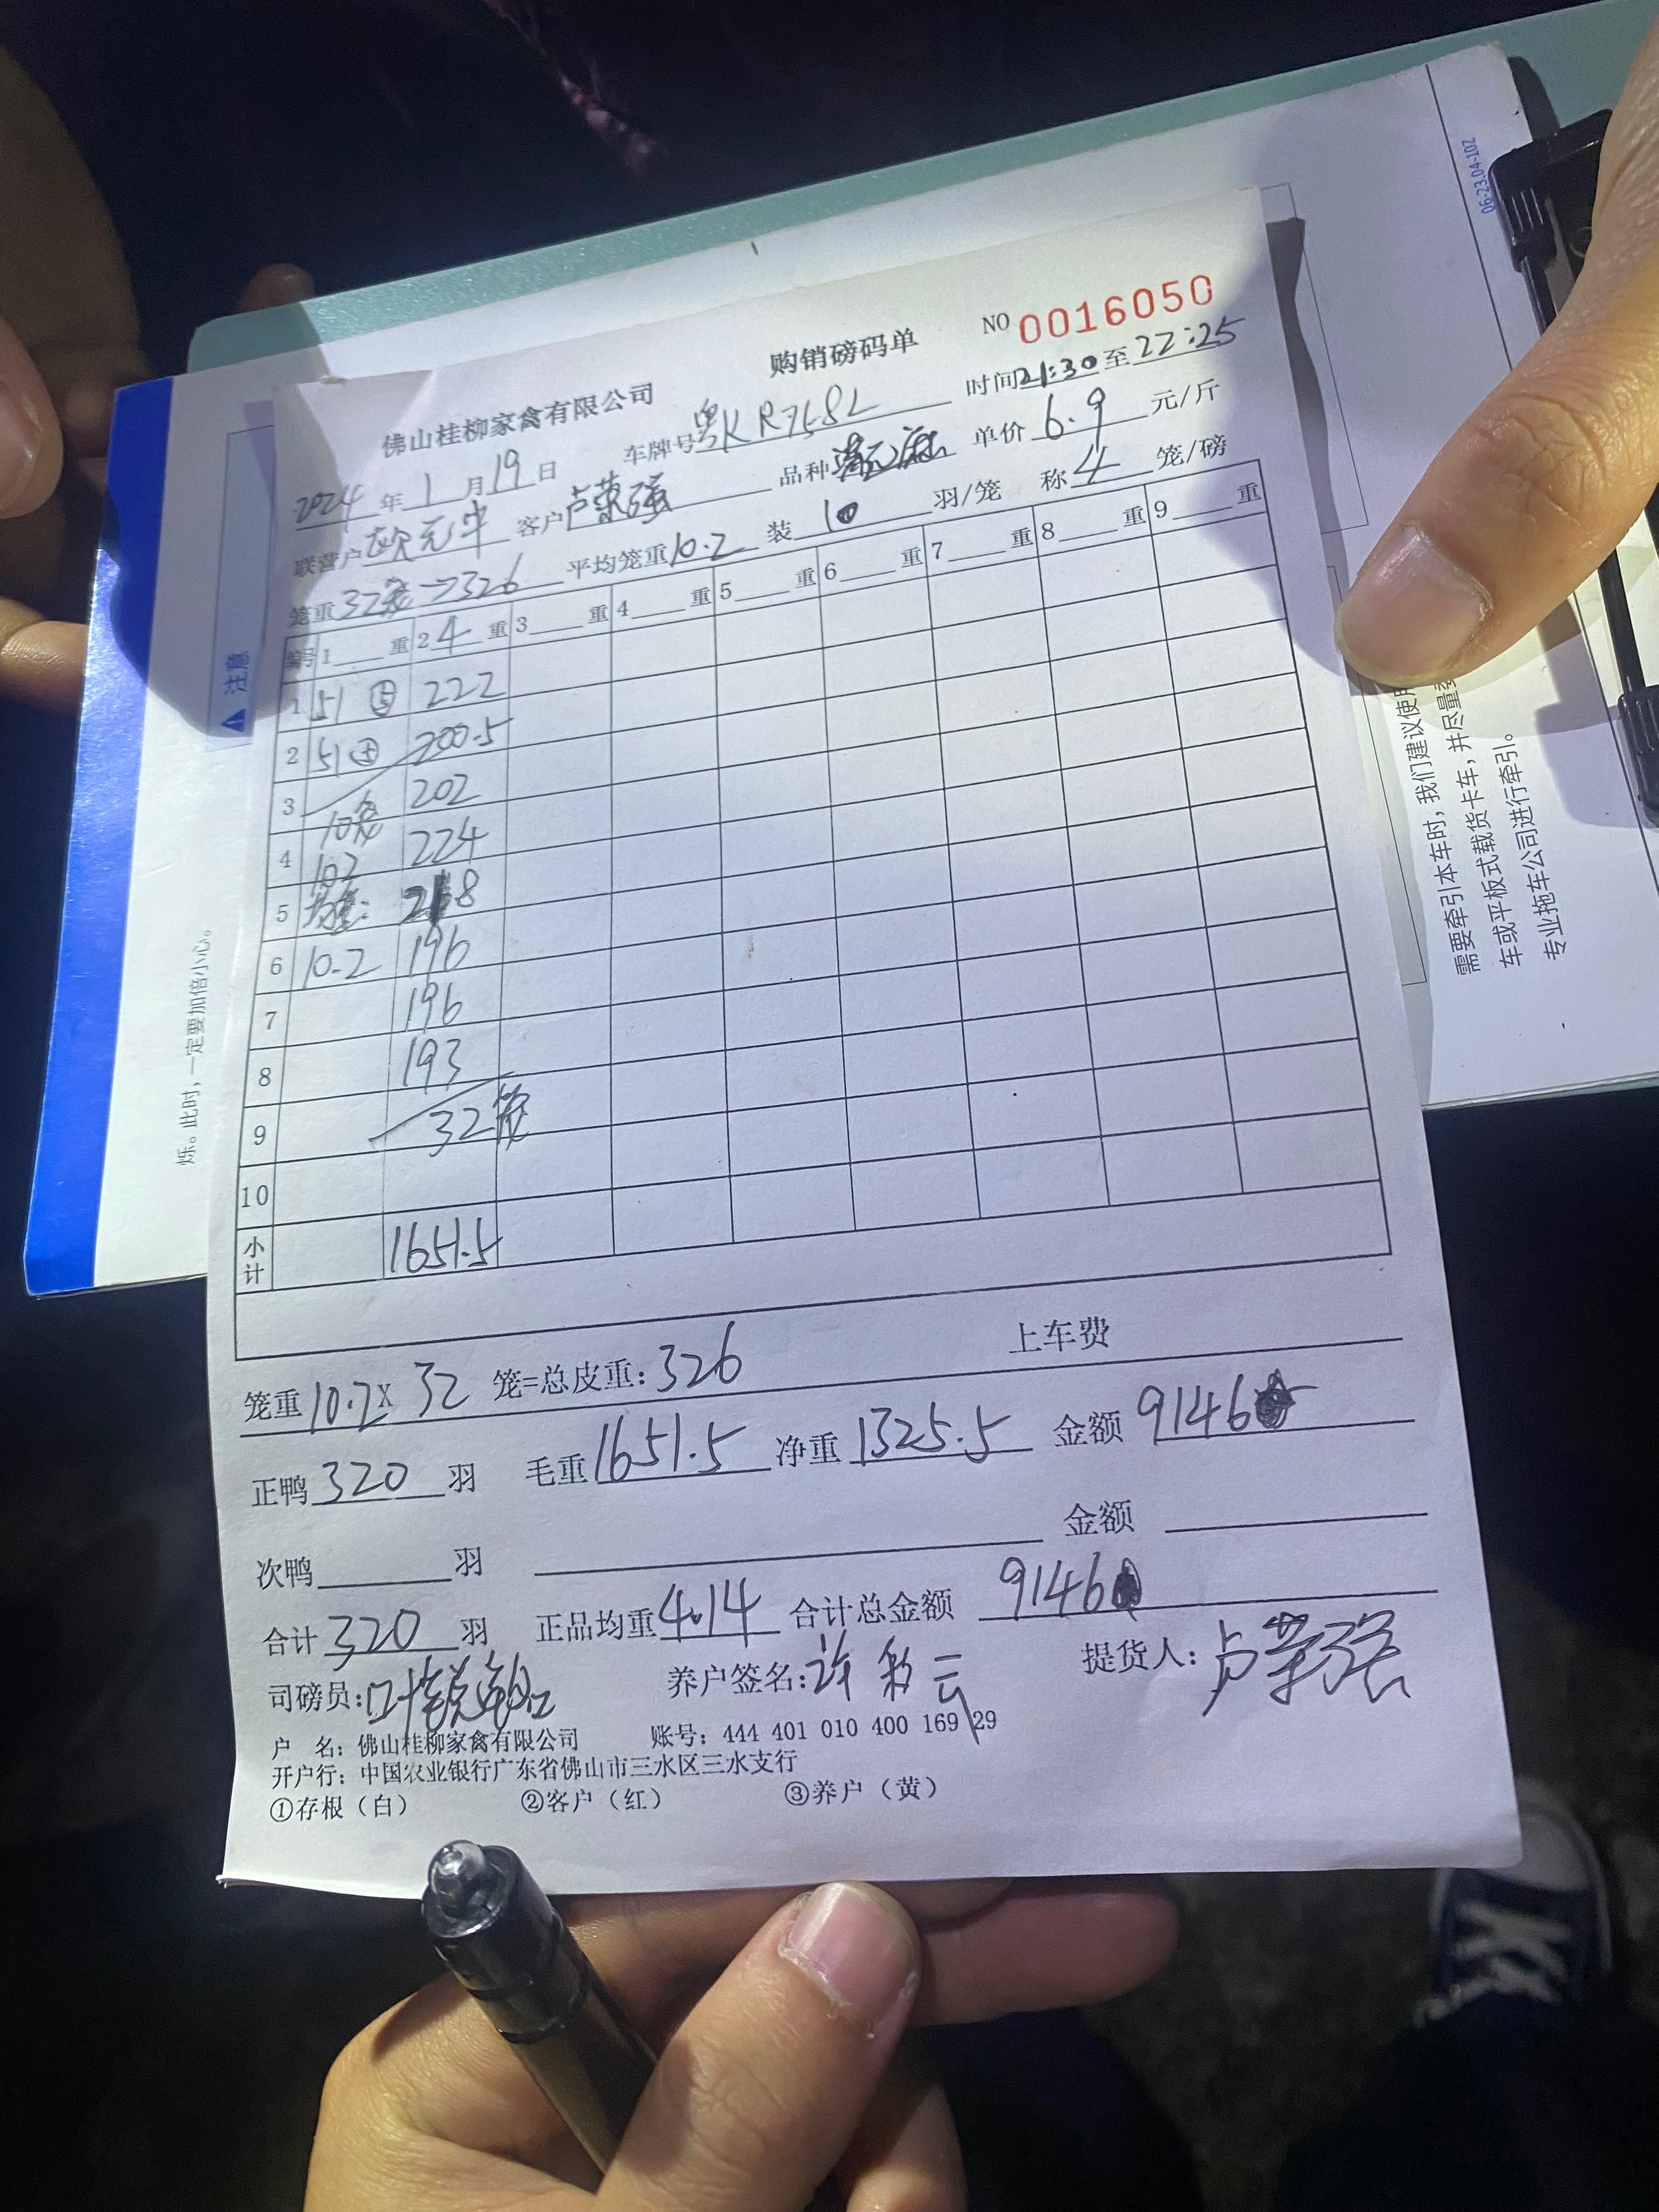 06-23.04-102
购销磅码单
NO 0016050
佛山桂柳家禽有限公司
车牌号 粤KR758L 时间 21:30 至 22:25
2024 年 1 月 19 日
品种 单价 6.9 元/斤
联营户 欧元华 客户 卢荣强
装 10 羽/笼 称 4 笼/磅
笼重 32笼→326 平均笼重 10.2
编号 1 重 2 4 重 3 重 4 重 5 重 6 重 7 重 8 重 9 重
1 51 ⑤ 222
2 51 ⑤ 200.5
3 10笼 202
4 102 224
5 218
6 10.2 196
7 196
8 193
9 32笼
10
小计 1651.5
笼重 10.2 X 32 笼=总皮重: 326 上车费
正鸭 320 羽 毛重 1651.5 净重 1325.5 金额 9146
次鸭 羽 金额
合计 320 羽 正品均重 4.14 合计总金额 9146
司磅员: 养户签名: 许彩云 提货人: 卢荣强
户 名: 佛山桂柳家禽有限公司 账号: 444 401 010 400 169 29
开户行: 中国农业银行广东省佛山市三水区三水支行
①存根（白） ②客户（红） ③养户（黄）
注意
烁。此时，一定要加倍小心。
需要牵引本车时，我们建议使用
车或平板式载货卡车，并尽量
专业拖车公司进行牵引。